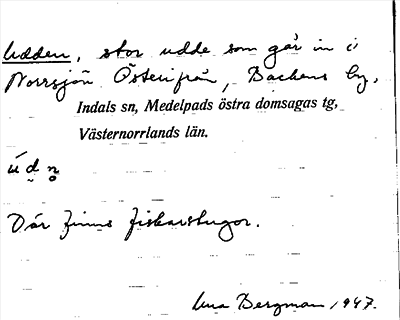 Udden, stor udde som går in i
Norrsjön Österifrån, Backens by.
Indals sn, Medelpads östra domsagas tg,
Västernorrlands län.
ú d n̥
Där finns fiskarstugor.
Bergman 1947.